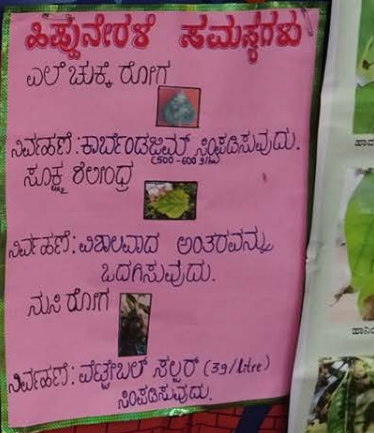 ಹಿಪ್ಪುನೇರಳೆ ಸಮಸ್ಯೆಗಳು
ಎಲೆ ಚುಕ್ಕೆ ರೋಗ
ನಿರ್ವಹಣೆ: ಕಾರ್ಬೆಂಡಜಿಮ್ ಸಿಂಪಡಿಸುವುದು.
(500-600 g/
ಸೂಕ್ಷ್ಮ ಶಿಲೀಂಧ್ರ
ನಿರ್ವಹಣೆ: ವಿಶಾಲವಾದ ಅಂತರವನ್ನು
ಒದಗಿಸುವುದು.
ನುಸಿ ರೋಗ
ನಿರ್ವಹಣೆ: ವೆಟ್ಟೇಬಲ್ ಸಲ್ಫರ್ (3g/litre)
ಸಿಂಪಡಿಸುವುದು.